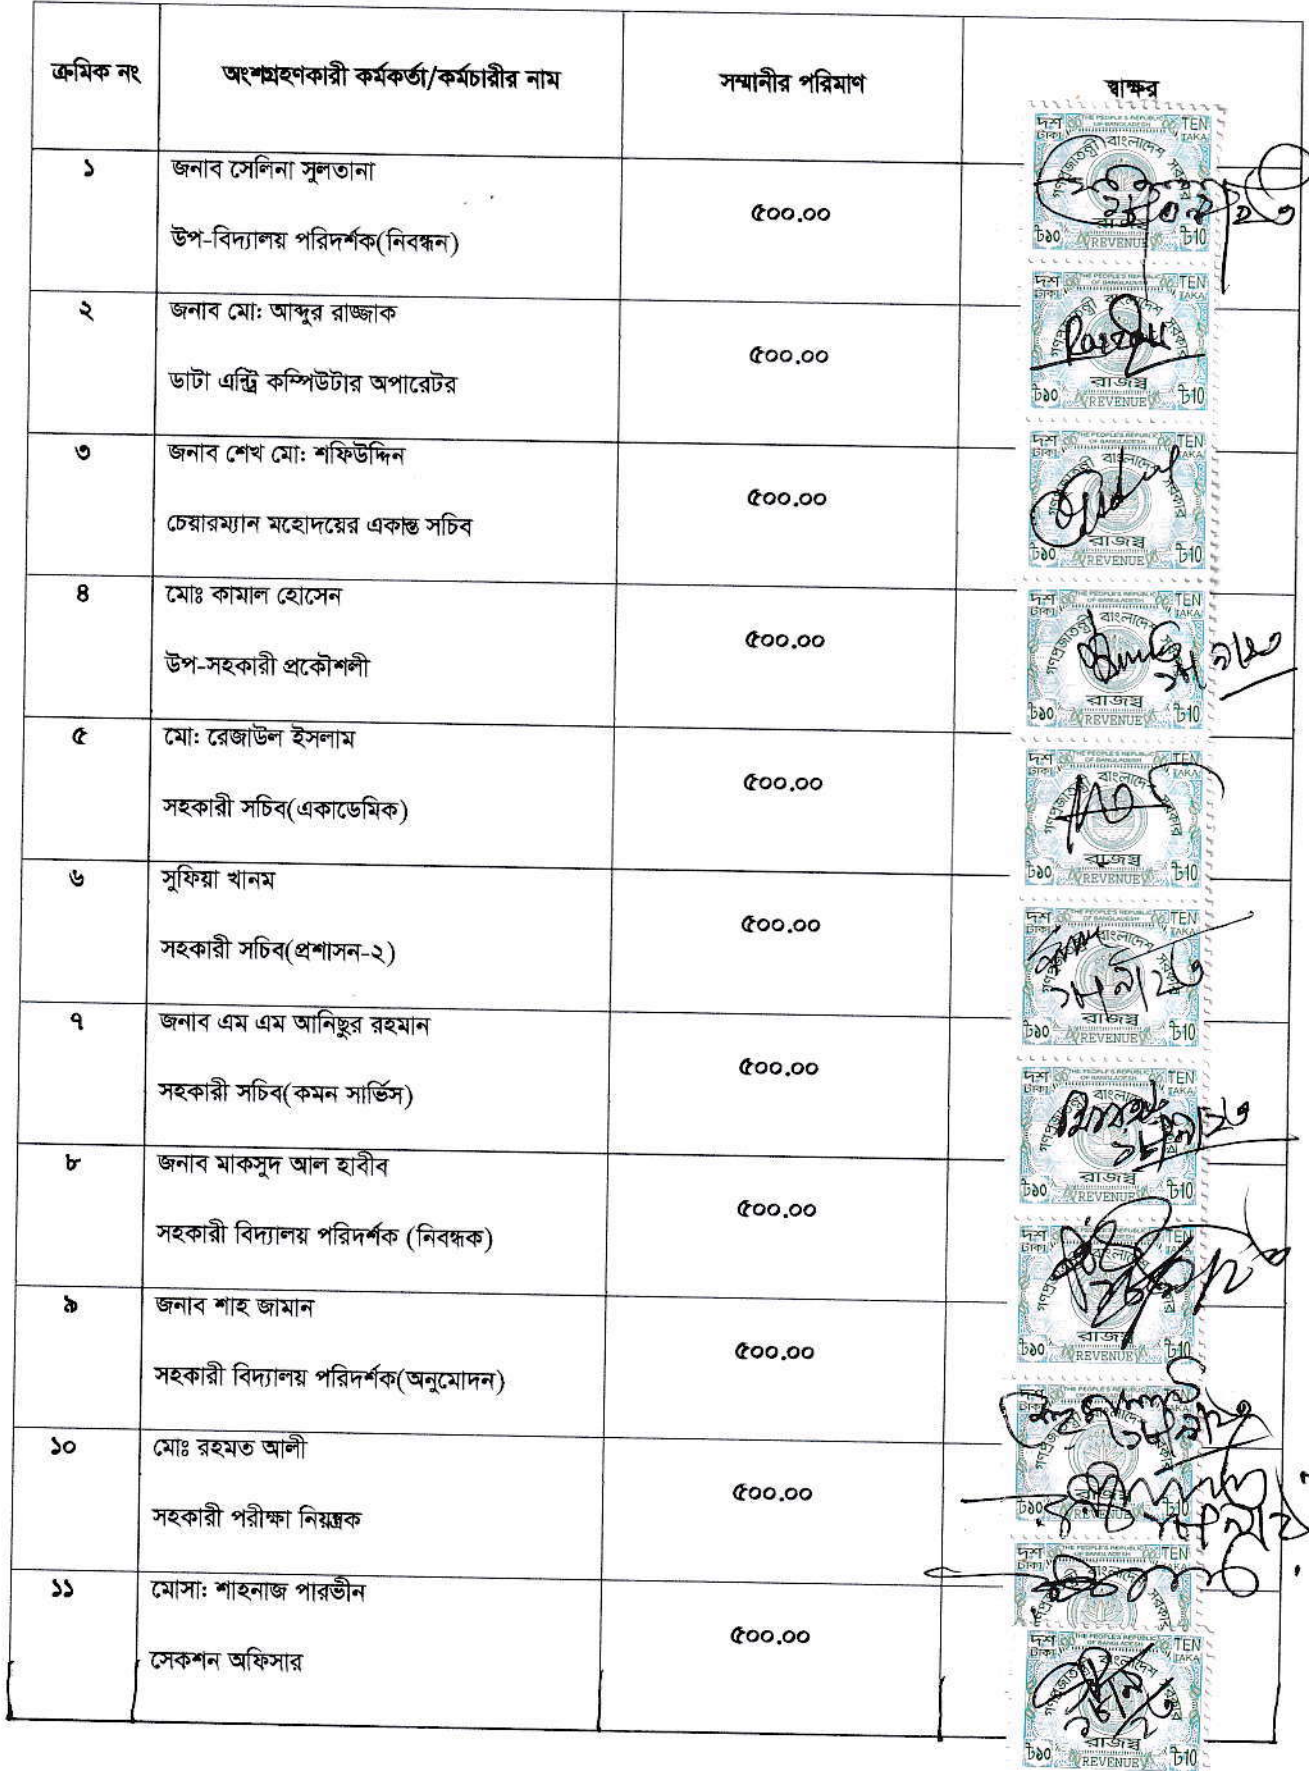 ক্রমিক নং অংশগ্রহণকারী কর্মকর্তা/কর্মচারীর নাম সম্মানীর পরিমাণ স্বাক্ষর
১ জনাব সেলিনা সুলতানা
উপ-বিদ্যালয় পরিদর্শক(নিবন্ধন) ৫০০.০০
২ জনাব মো: আব্দুর রাজ্জাক
ডাটা এন্ট্রি কম্পিউটার অপারেটর ৫০০.০০
৩ জনাব শেখ মো: শফিউদ্দিন
চেয়ারম্যান মহোদয়ের একান্ত সচিব ৫০০.০০
৪ মোঃ কামাল হোসেন
উপ-সহকারী প্রকৌশলী ৫০০.০০
৫ মো: রেজাউল ইসলাম
সহকারী সচিব(একাডেমিক) ৫০০.০০
৬ সুফিয়া খানম
সহকারী সচিব(প্রশাসন-২) ৫০০.০০
৭ জনাব এম এম আনিছুর রহমান
সহকারী সচিব(কমন সার্ভিস) ৫০০.০০
৮ জনাব মাকসুদ আল হাবীব
সহকারী বিদ্যালয় পরিদর্শক (নিবন্ধক) ৫০০.০০
৯ জনাব শাহ জামান
সহকারী বিদ্যালয় পরিদর্শক(অনুমোদন) ৫০০.০০
১০ মোঃ রহমত আলী
সহকারী পরীক্ষা নিয়ন্ত্রক ৫০০.০০
১১ মোসা: শাহনাজ পারভীন
সেকশন অফিসার ৫০০.০০
দশ টাকা THE PEOPLE'S REPUBLIC OF BANGLADESH TEN TAKA
গণপ্রজাতন্ত্রী বাংলাদেশ সরকার
রাজস্ব
৳১০ REVENUE ৳10